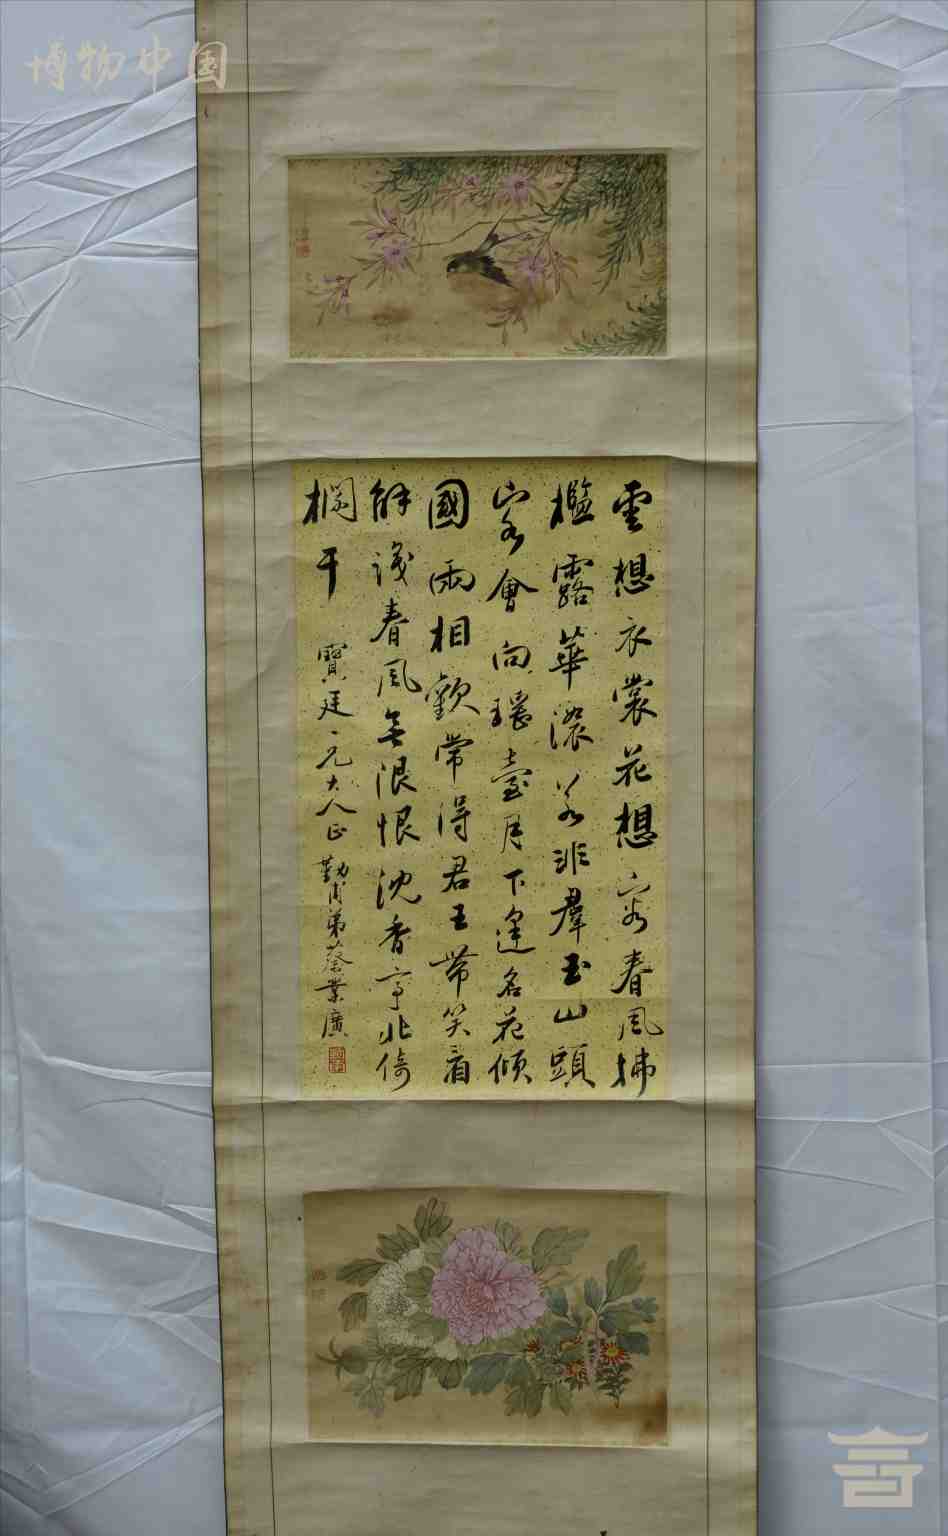 博物中国
雲想衣裳花想容春風拂
檻露華濃若非羣玉山頭
容會向瑤臺月下逢名花傾
國兩相歡常得君王帶笑看
解識春風無限恨沈香亭北倚
欄干 寶廷兄大人正 勤甫弟蔡業廣